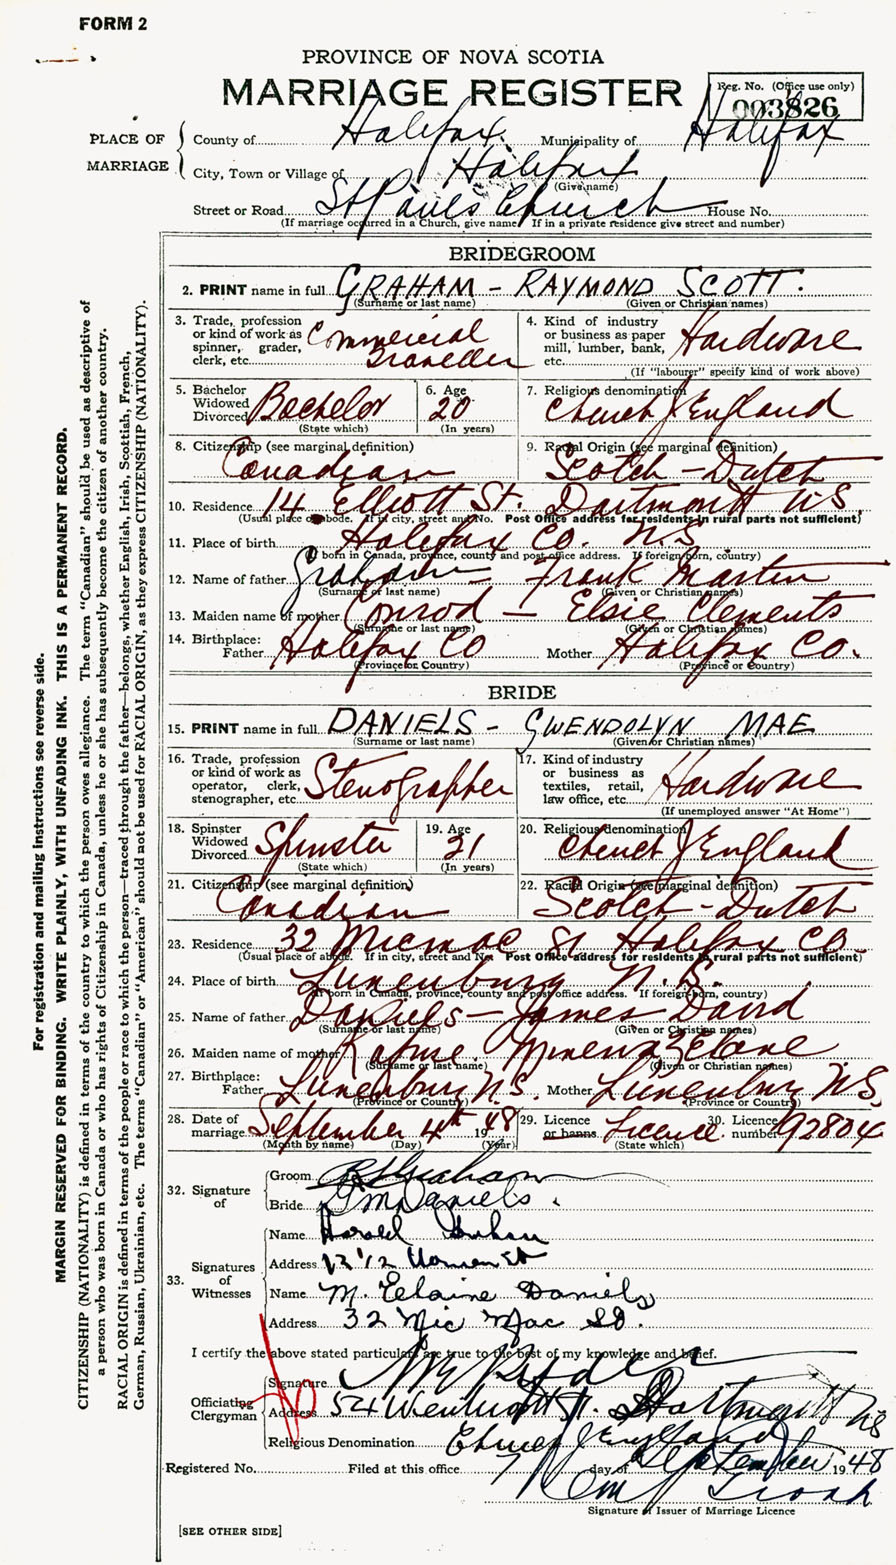 FORM 2
PROVINCE OF NOVA SCOTIA
MARRIAGE REGISTER
Reg. No. (Office use only)
003826
PLACE OF MARRIAGE
County of Halifax Municipality of Halifax
City, Town or Village of Halifax
(Give name)
Street or Road St Pauls Church House No.
(If marriage occurred in a Church, give name. If in a private residence give street and number)
BRIDEGROOM
2. PRINT name in full GRAHAM - RAYMOND SCOTT.
(Surname or last name) (Given or Christian names)
3. Trade, profession or kind of work as spinner, grader, clerk, etc. Commercial Traveller
4. Kind of industry or business as paper mill, lumber, bank, etc. Hardware
(If "labourer" specify kind of work above)
5. Bachelor Widowed Divorced Bachelor
(State which)
6. Age 20
(In years)
7. Religious denomination Church of England
8. Citizenship (see marginal definition) Canadian
9. Racial Origin (see marginal definition) Scotch-Dutch
10. Residence 14 Elliott St. Dartmouth N.S.
(Usual place of abode. If in city, street and No. Post Office address for residents in rural parts not sufficient)
11. Place of birth Halifax Co. N.S.
(If born in Canada, province, county and post office address. If foreign born, country)
12. Name of father Graham - Frank Martin
(Surname or last name) (Given or Christian names)
13. Maiden name of mother Conrod - Elsie Clements
(Surname or last name) (Given or Christian names)
14. Birthplace: Father Halifax Co Mother Halifax Co.
(Province or Country) (Province or Country)
BRIDE
15. PRINT name in full DANIELS - GWENDOLYN MAE
(Surname or last name) (Given or Christian names)
16. Trade, profession or kind of work as operator, clerk, stenographer, etc. Stenographer
17. Kind of industry or business as textiles, retail, law office, etc. Hardware
(If unemployed answer "At Home")
18. Spinster Widowed Divorced Spinster
(State which)
19. Age 21
(In years)
20. Religious denomination Church of England
21. Citizenship (see marginal definition) Canadian
22. Racial Origin (see marginal definition) Scotch-Dutch
23. Residence 32 Micmac St Halifax Co.
(Usual place of abode. If in city, street and No. Post Office address for residents in rural parts not sufficient)
24. Place of birth Lunenburg N.S.
(If born in Canada, province, county and post office address. If foreign born, country)
25. Name of father Daniels - James David
(Surname or last name) (Given or Christian names)
26. Maiden name of mother
(Surname or last name) (Given or Christian names)
27. Birthplace: Father Lunenburg N.S. Mother Lunenburg N.S.
(Province or Country) (Province or Country)
28. Date of marriage September 4th 1948
(Month by name) (Day) (Year)
29. Licence or banns Licence
(State which)
30. Licence number 92804
32. Signature of
Groom R S Graham
Bride G M Daniels.
33. Signatures of Witnesses
Name Harold Graham
Address
Name M. Elaine Daniels
Address 32 Mic Mac St.
I certify the above stated particulars are true to the best of my knowledge and belief.
Officiating Clergyman
Signature
Address 54 Wentworth St. Dartmouth NS
Religious Denomination Church of England
Registered No. Filed at this office 7 day of September 1948
Signature of Issuer of Marriage Licence
[SEE OTHER SIDE]
For registration and mailing instructions see reverse side.
MARGIN RESERVED FOR BINDING. WRITE PLAINLY, WITH UNFADING INK. THIS IS A PERMANENT RECORD.
CITIZENSHIP (NATIONALITY) is defined in terms of the country to which the person owes allegiance. The term "Canadian" should be used as descriptive of
a person who was born in Canada or who has rights of Citizenship in Canada, unless he or she has subsequently become the citizen of another country.
RACIAL ORIGIN is defined in terms of the people or race to which the person—traced through the father—belongs, whether English, Irish, Scottish, French,
German, Russian, Ukrainian, etc. The terms "Canadian" or "American" should not be used for RACIAL ORIGIN, as they express CITIZENSHIP (NATIONALITY).